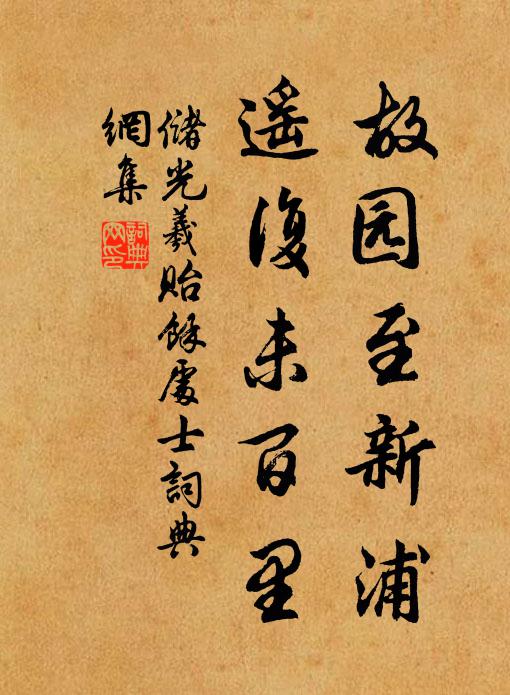 故园至新浦
遥復未百里
储光羲贻馀處士詞典
網集
詞典網印